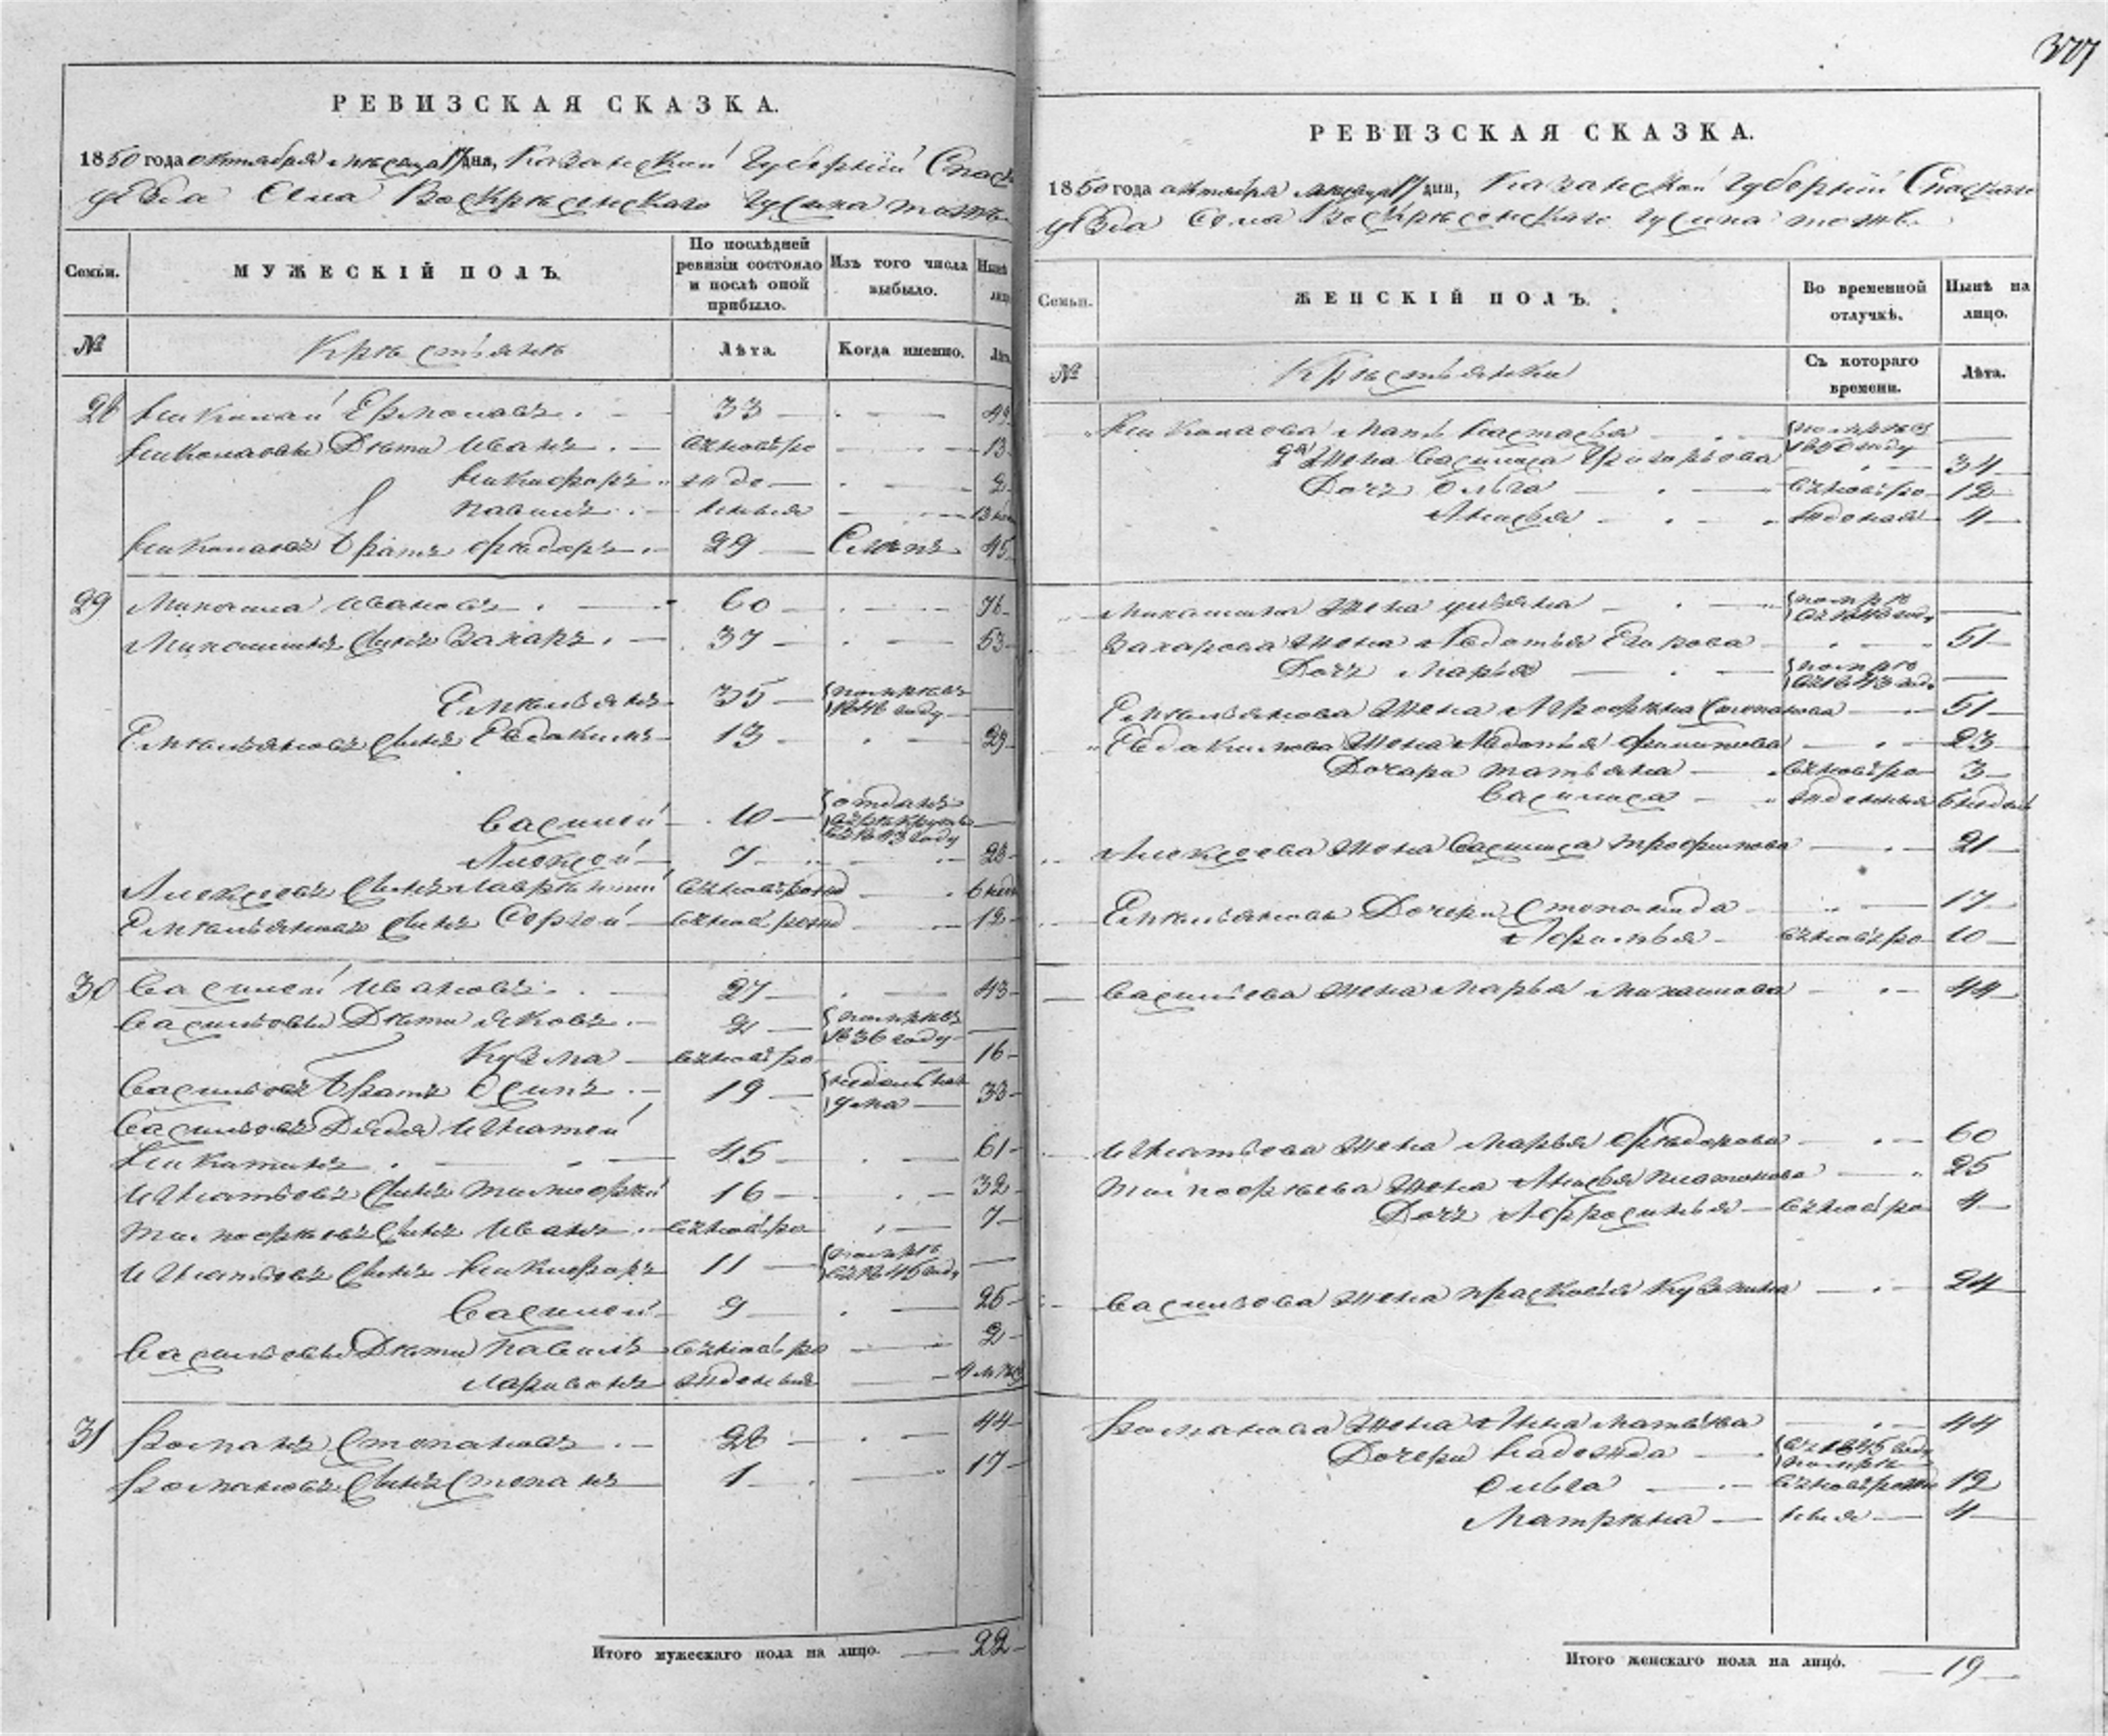 377
РЕВИЗСКАЯ СКАЗКА.
1850 года октября месяца 17 дня, Казанской Губернiи Спаск
уѣзда Села Воскресенскаго Гусиха тожъ
Семьи.
МУЖЕСКІЙ ПОЛЪ.
По послѣдней ревизіи состояло и послѣ оной прибыло.
Изъ того числа выбыло.
Нынѣ лицо
№
Крестьяне
Лѣта.
Когда именно.
Лѣт
28 Николай Ермолаевъ 33
Николаевы Дѣти Иванъ въ новь ро 13
Никифоръ 2
Павилъ
Николаевъ братъ Федоръ 29 Слепъ 45
29 Микаила Ивановъ 60 76
Микаилинъ сынъ Захаръ 37 53
Емельянъ 35 померъ въ 1848 году
Емельяновъ сынъ Евдакимъ 13 29
Василей 10 отданъ въ рекруты въ 1843 году
Алексей 7 23
Алексеевъ сынъ Лаврентий въ новь рожд 6 недъ
Емельяновъ сынъ Сергей въ новь рожд 12
30 Василей Ивановъ 27 43
Васильевы Дѣти Яковъ 2 померъ 1836 году
Кузма въ новь ро 16
Васильевъ братъ Осипъ 19
Васильевъ Дядя Игнатей
Никитинъ 45 61
Игнатьевъ сынъ Тимофей 16 32
Тимофеевъ сынъ Иванъ въ новь ро 7
Игнатьевъ сынъ Никифоръ 11 померъ въ 1845 году
Василей 9 25
Васильевы Дѣти Павилъ въ новь ро 2
Ларивонъ
31 Романъ Степановъ 28 44
Романовъ сынъ Степанъ 1 17
Итого мужескаго пола на лицо. 22
РЕВИЗСКАЯ СКАЗКА.
1850 года октября месяца 17 дня, Казанской Губернiи Спаскаго
уѣзда Села Воскресенскаго Гусиха тожъ.
Семьи.
ЖЕНСКІЙ ПОЛЪ.
Во временной отлучкѣ.
Нынѣ на лицо.
№
Крестьянки
Съ котораго времени.
Лѣта.
Николаева мать Настасья
2я жена Василиса Григорьева 34
Дочь Ольга въ новь ро 12
Анисья 4
Микаилина жена Ульяна
Захарова жена Авдотья Егорова 51
Дочь Марья померла въ 1843 году
Емельянова жена Агрофена Степанова 51
Евдакимова жена Авдотья Филипова 23
Дочери Татьяна въ новь ро 3
Василиса 6 недель
Алексеева жена Василиса Трофимова 21
Емельяновы Дочери Степанида 17
Афимья въ новь ро 10
Васильева жена Марья Михаилова 44
Игнатьева жена Марья Федорова 60
Тимофеева жена Анисья Платонова 25
Дочь Афросинья въ новь ро 4
Васильева жена Прасковья Кузмина 24
Романова жена Анна Матвева 44
Дочери Надежда
Ольга въ новь рожд 12
Матрена 4
Итого женскаго пола на лицо. 19